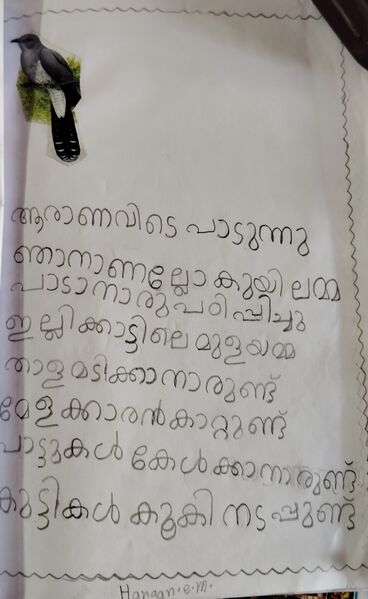 ആരാണവിടെ പാടുന്നു
ഞാനാണല്ലോ കുയി ലമ്മ
പാടാനാരു പഠി പ്പിച്ചു
ഇ ല്ലിക്കാട്ടിലെ മുളയമ്മ
താള മടിക്കാനാരുണ്ട്
മേള ക്കാരൻകാറ്റുണ്ട്
പാട്ടുകൾ കേൾക്കാനാരുണ്ട്
കുട്ടികൾ കൂകി നടപ്പുണ്ട്
Hanaan.e.m.